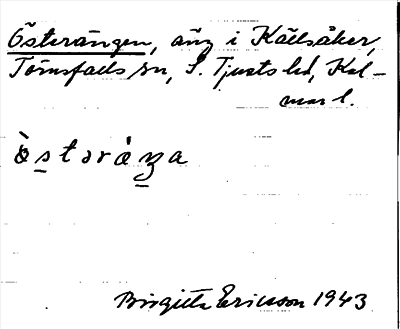 Österängen, äng i Källsåker,
Törnsfalls sn, S. Tjusts hd, Kal-
mar l.
òstəráŋa
Birgitta Ericsson 1943